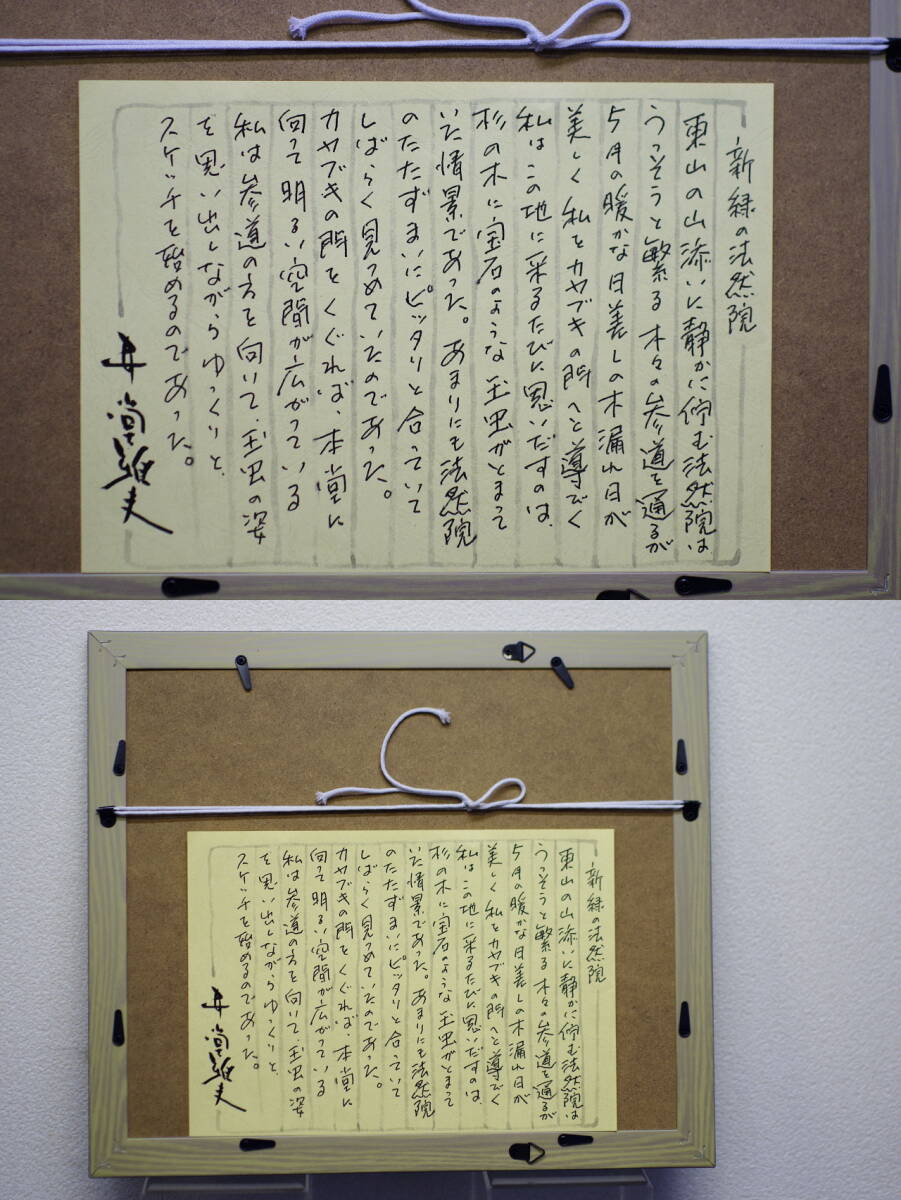 新緑の法然院
東山の山添いに静かに佇む法然院は
うっそうと繁る木々の参道を通るが
5月の暖かな日差しの木漏れ日が
美しく私をカヤブキの門へと導びく
私はこの地に来るたびに思いだすのは、
杉の木に宝石のような玉虫がとまって
いた情景であった。あまりにも法然院
のたたずまいにピッタリと合っていて
しばらく見つめていたのであった。
カヤブキの門をくぐれば、本堂に
向って明るい空間が広がっている
私は参道の方を向いて、玉虫の姿
を思い出しながらゆっくりと、
スケッチを始めるのであった。
井堂雅夫
新緑の法然院
東山の山添いに静かに佇む法然院は
うっそうと繁る木々の参道を通るが
5月の暖かな日差しの木漏れ日が
美しく私をカヤブキの門へと導びく
私はこの地に来るたびに思いだすのは、
杉の木に宝石のような玉虫がとまって
いた情景であった。あまりにも法然院
のたたずまいにピッタリと合っていて
しばらく見つめていたのであった。
カヤブキの門をくぐれば、本堂に
向って明るい空間が広がっている
私は参道の方を向いて、玉虫の姿
を思い出しながらゆっくりと、
スケッチを始めるのであった。
井堂雅夫